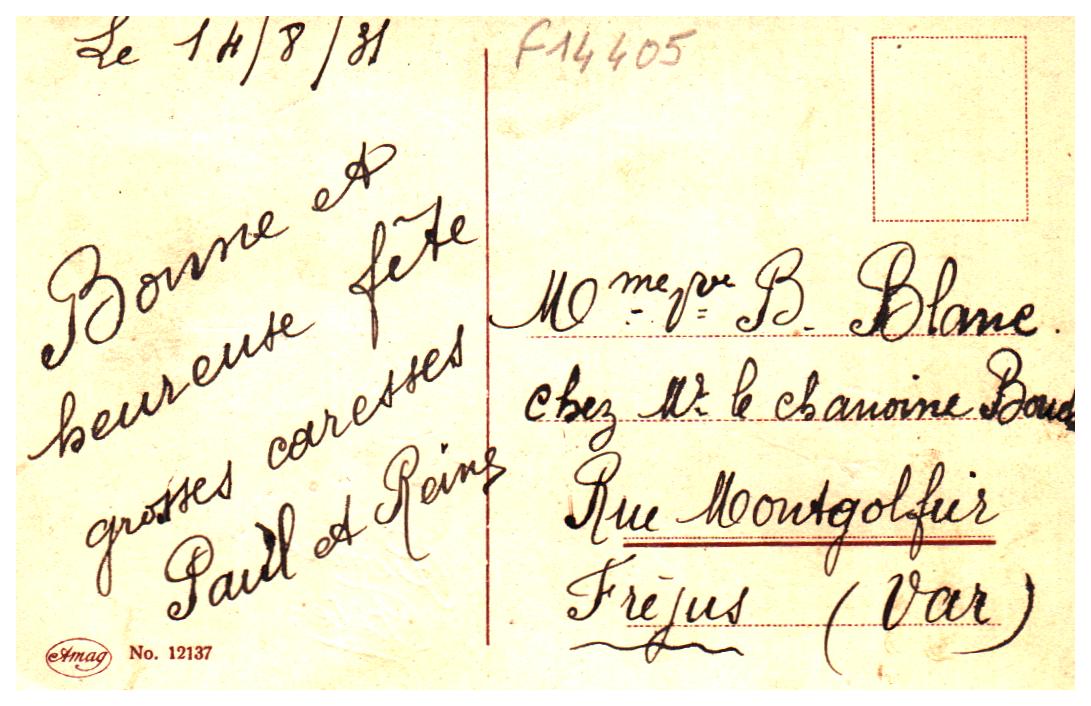 Le 14/8/31
F14405
Bonne et
heureuse fête
grosses caresses
Paul et Reine
Mme Vve B. Blanc.
chez Mr. le chanoine
Rue Montgolfier
Fréjus (Var)
Amag No. 12137